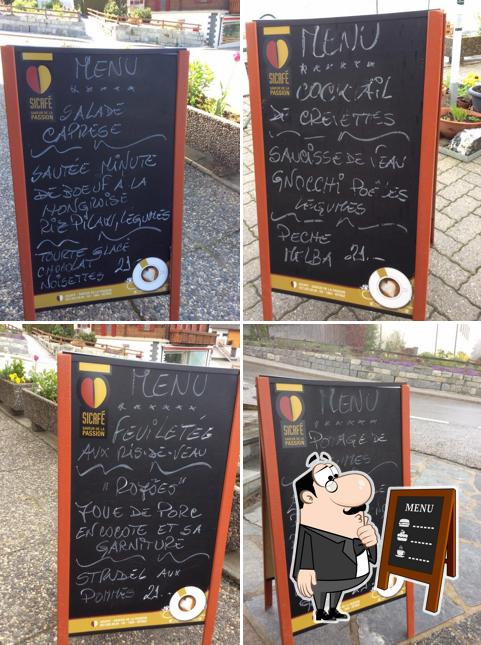 SICAFÉ
SAVEUR DE LA
PASSION
MENU
SALADE
CAPRESE
SAUTÉE MINUTE
DE BOEUF A LA
HONGROISE
RIZ PILAW, LEGUMES
TOURTE GLACÉ
CHOCOLAT
NOISETTES 21
SICAFÉ
SAVEUR DE LA
PASSION
MENU
COCKTAIL
DE CREVETTES
SAUCISSE DE VEAU
GNOCCHI POÊLÉES
LEGUMES
PECHE
MELBA 21.-
SICAFÉ
SAVEUR DE LA
PASSION
MENU
FEUILETÉE
AUX RIS-DE-VEAU
JOUE DE PORC
EN COCOTE ET SA
GARNITURE
STRUDEL AUX
POMMES 21.-
SICAFÉ
SAVEUR DE LA
PASSION
MENU
POTAGE DE
MENU